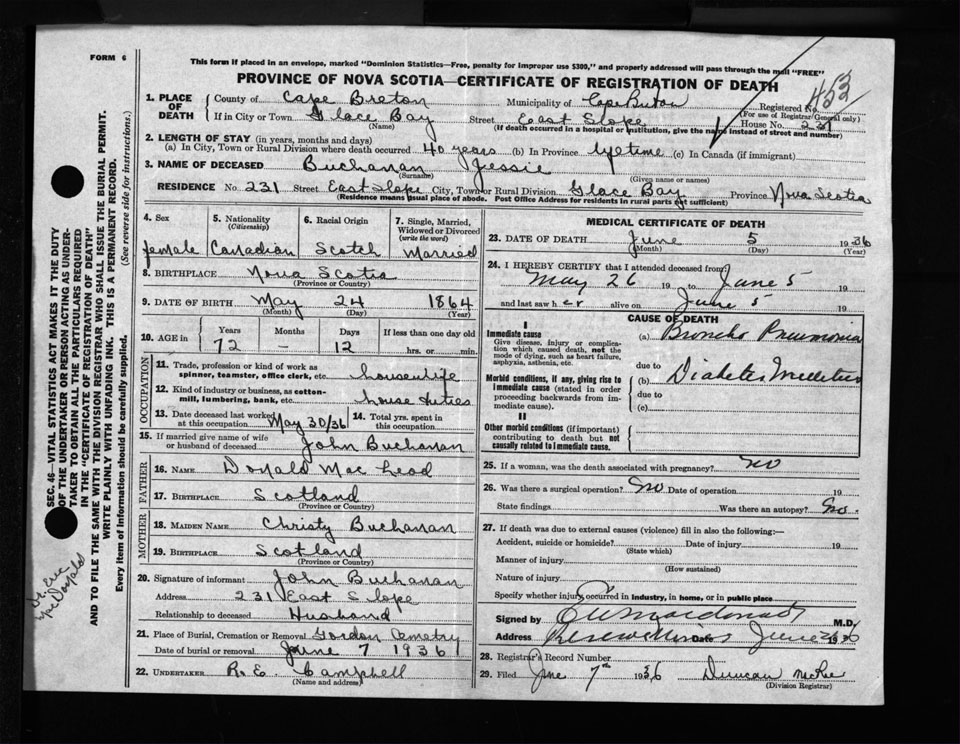 FORM 6
This form if placed in an envelope, marked "Dominion Statistics—Free, penalty for improper use $300," and properly addressed will pass through the mail "FREE"
PROVINCE OF NOVA SCOTIA—CERTIFICATE OF REGISTRATION OF DEATH
453
1. PLACE OF DEATH
County of Cape Breton Municipality of Cape Breton Registered No.
(For use of Registrar General only)
If in City or Town Glace Bay Street East Slope House No. 231
(Name) (If death occurred in a hospital or institution, give the name instead of street and number)
2. LENGTH OF STAY (in years, months and days)
(a) In City, Town or Rural Division where death occurred 40 years (b) In Province lyftime (c) In Canada (if immigrant)
3. NAME OF DECEASED Buchanan Jessie
(Surname) (Given name or names)
RESIDENCE No. 231 Street East Slope City, Town or Rural Division Glace Bay Province Nova Scotia
(Residence means usual place of abode. Post Office Address for residents in rural parts not sufficient)
4. Sex 5. Nationality (Citizenship) 6. Racial Origin 7. Single, Married, Widowed or Divorced (write the word)
female Canadian Scotch Married
8. BIRTHPLACE Nova Scotia
(Province or Country)
9. DATE OF BIRTH May 24 1864
(Month) (Day) (Year)
10. AGE in Years Months Days If less than one day old
72 – 12 hrs. or min.
OCCUPATION
11. Trade, profession or kind of work as spinner, teamster, office clerk, etc. housewife
12. Kind of industry or business, as cotton-mill, lumbering, bank, etc. house duties
13. Date deceased last worked at this occupation May 30/36 14. Total yrs. spent in this occupation
15. If married give name of wife or husband of deceased John Buchanan
FATHER
16. NAME Donald Mac Leod
17. BIRTHPLACE Scotland
(Province or Country)
MOTHER
18. MAIDEN NAME Christy Buchanan
19. BIRTHPLACE Scotland
(Province or Country)
20. Signature of informant John Buchanan
Address 231 East Slope
Relationship to deceased Husband
21. Place of Burial, Cremation or Removal Gordon Cemetry
Date of burial or removal June 7 1936
22. UNDERTAKER R. E. Campbell
(Name and address)
MEDICAL CERTIFICATE OF DEATH
23. DATE OF DEATH June 5 1936
(Month) (Day) (Year)
24. I HEREBY CERTIFY that I attended deceased from:
May 26 19 to June 5 19
and last saw her alive on June 5 19
CAUSE OF DEATH
I
Immediate cause (a) Broncho Pneumonia
Give disease, injury or complication which caused death, not the mode of dying, such as heart failure, asphyxia, asthenia, etc.
due to
Morbid conditions, if any, giving rise to immediate cause (stated in order proceeding backwards from immediate cause).
(b) Diabetes Mellitus
due to
(c)
II
Other morbid conditions (if important) contributing to death but not causally related to immediate cause.
25. If a woman, was the death associated with pregnancy? No
26. Was there a surgical operation? No Date of operation 19
State findings Was there an autopsy? No.
27. If death was due to external causes (violence) fill in also the following:—
Accident, suicide or homicide? Date of injury 19
(State which)
Manner of injury
(How sustained)
Nature of injury
Specify whether injury occurred in industry, in home, or in public place
Signed by M.D.
Address Date June 1936
28. Registrar's Record Number
29. Filed June 7th 1936 Duncan McRee
(Division Registrar)
SEC. 46—VITAL STATISTICS ACT MAKES IT THE DUTY
OF THE UNDERTAKER OR PERSON ACTING AS UNDER-
TAKER TO OBTAIN ALL THE PARTICULARS REQUIRED
IN THE "CERTIFICATE OF REGISTRATION OF DEATH"
AND TO FILE THE SAME WITH THE DIVISION REGISTRAR WHO SHALL ISSUE THE BURIAL PERMIT.
WRITE PLAINLY WITH UNFADING INK. THIS IS A PERMANENT RECORD.
Every item of Information should be carefully supplied. (See reverse side for instructions.)